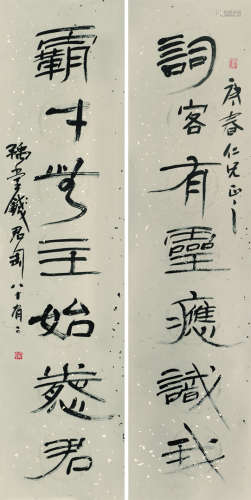 康春仁兄正之
詞客有靈應識我
霸才無主始憐君
豫堂錢君匋八十有二